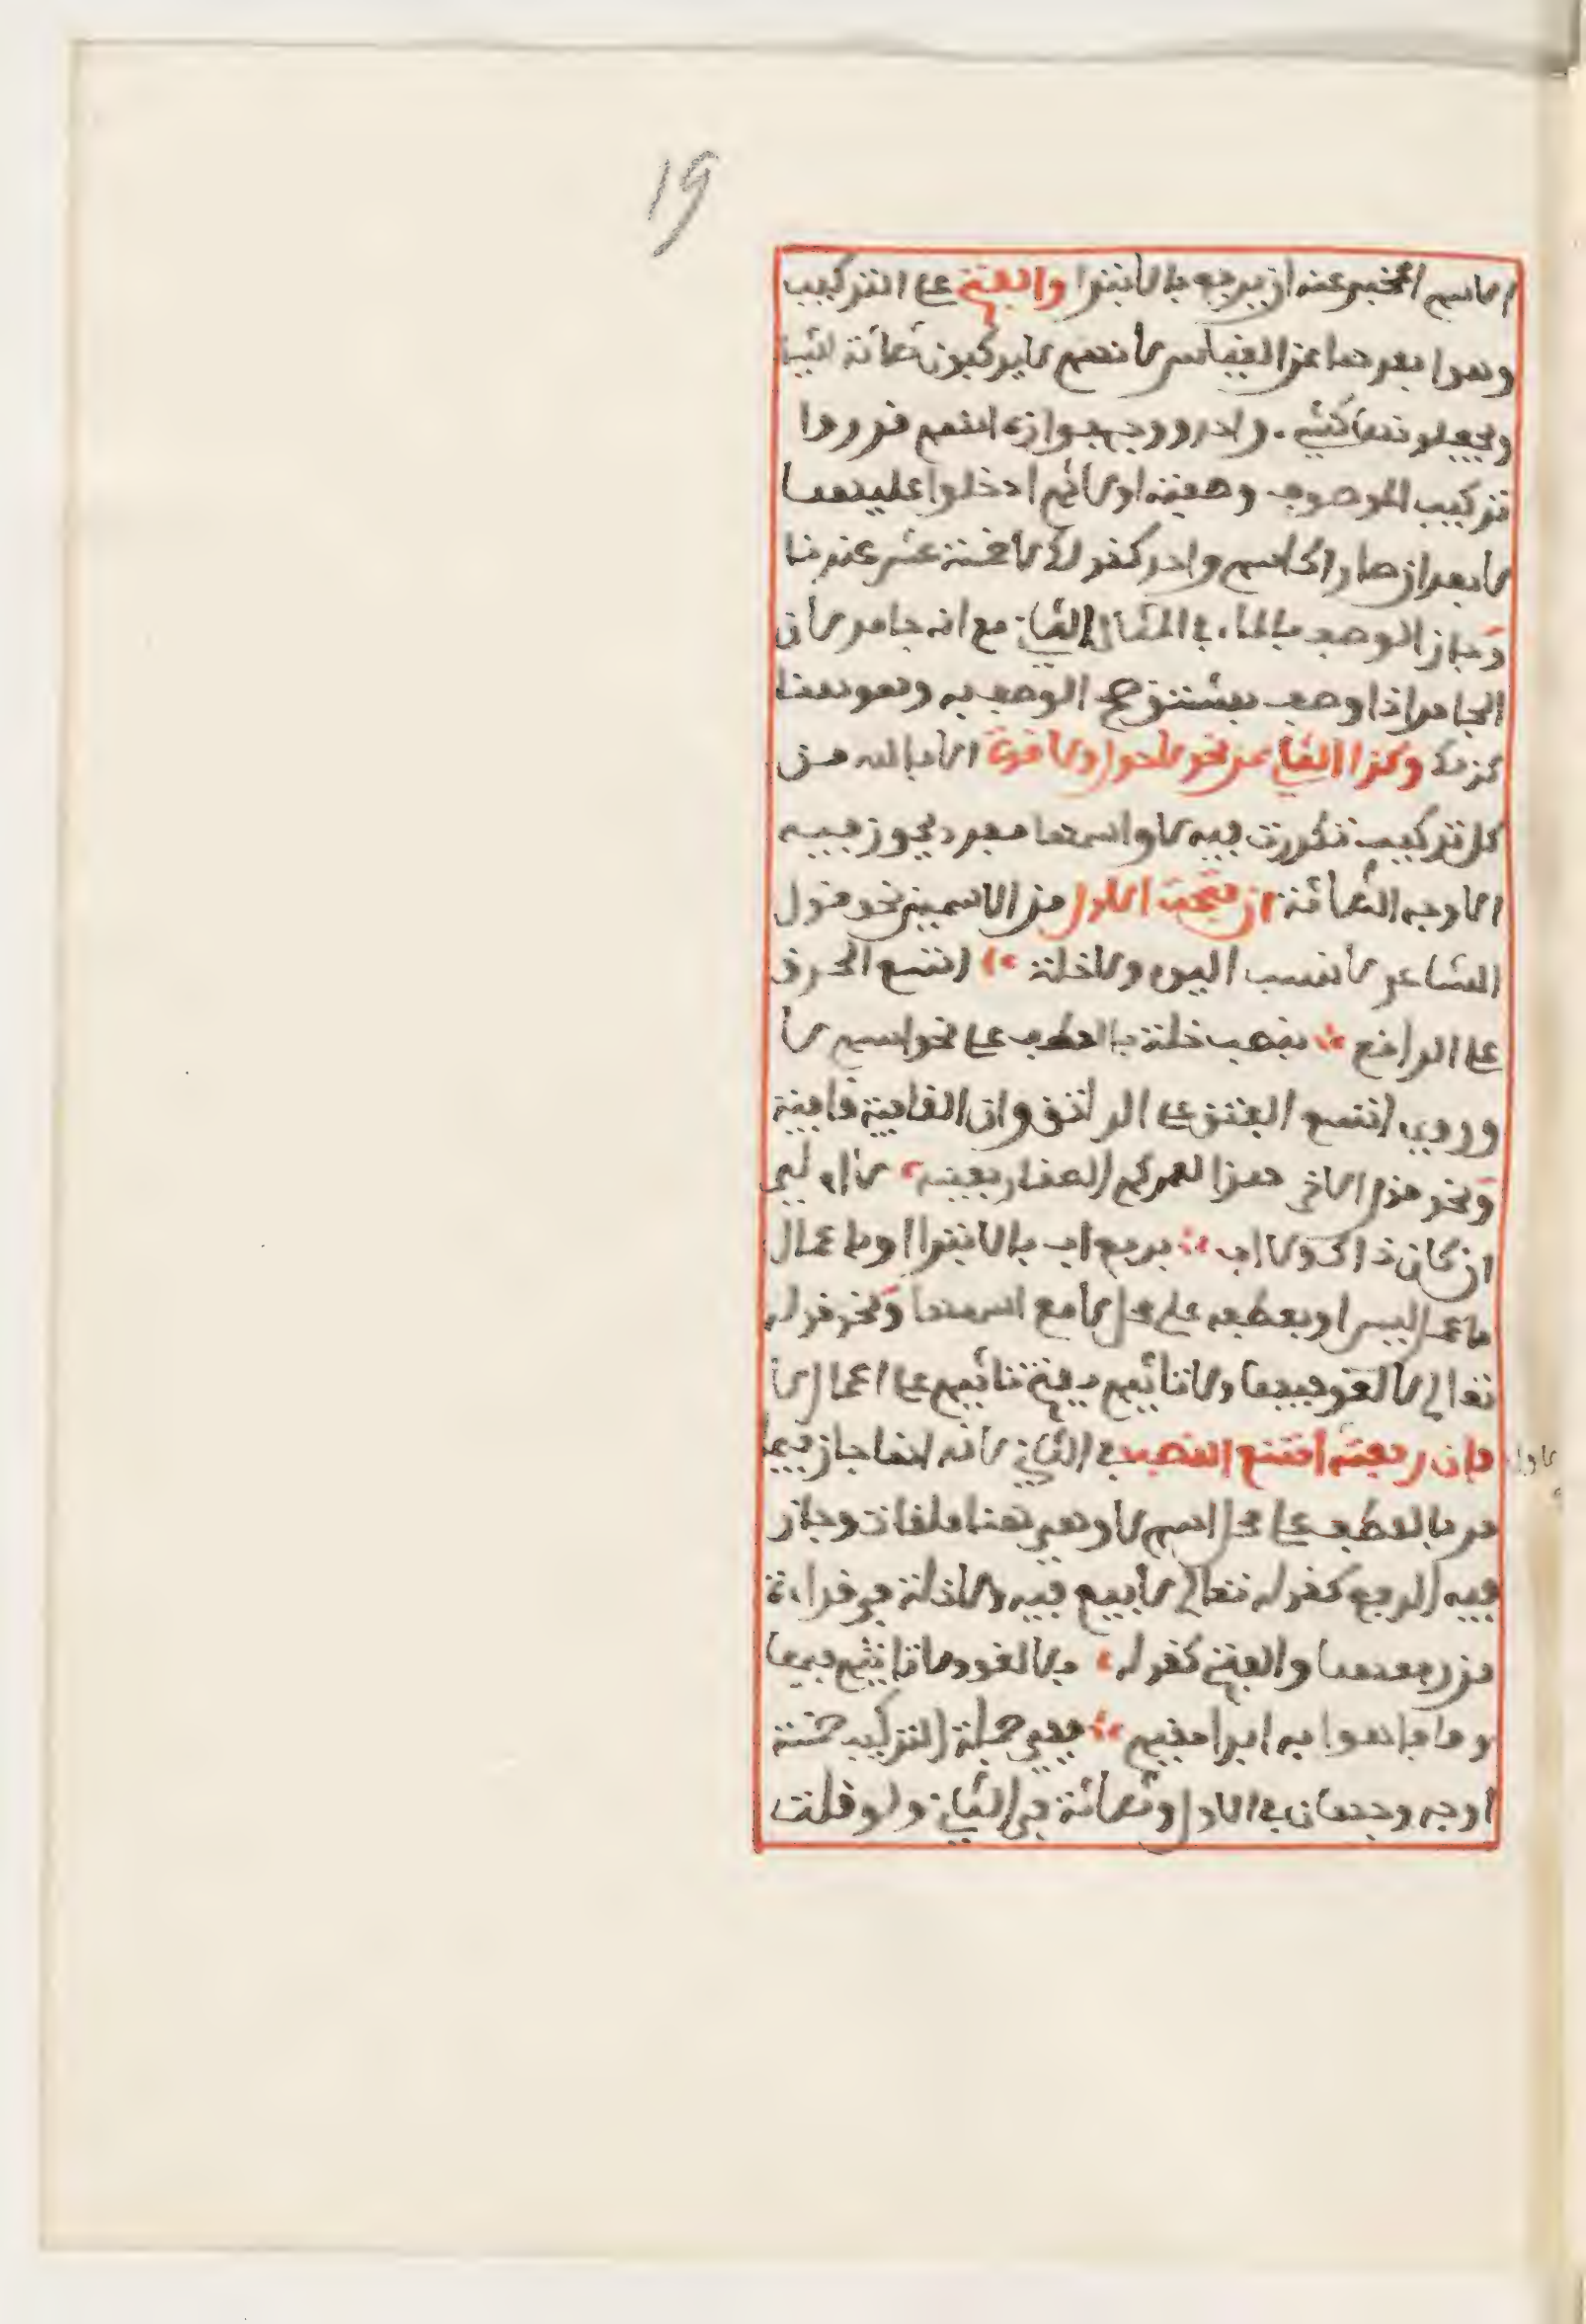 19
الاسم المخبر عنه ان يرفع بالابتدا والفتح على التركيب
وهو ابعدها عن القياس لانهم لا يركبون ثلاثة اشيا
ويجعلونها كشيء واحد ووجه جوازه انهم قدروا
تركيب الموصوف وصفته اولا ثم ادخلوا عليهما
لا بعد ان صار كالاسم الواحد كقولك لا خمسة عشر عندنا
وجاز الوصف بالماء في المثال الثاني مع انه جامد لان
الجامد اذا وصف بمشتق صح الوصف به وهو هنا
كذلك وكذا الثاني من نحو لا حول ولا قوة الا بالله من
كل تركيب تكررت فيه لا واسمها مفرد يجوز فيه
الاوجه الثلاثة ان فتحت الاول من الاسمين نحو قول
الشاعر لا نسب اليوم ولا خلة اتسع الخرق
على الراقع بنصب خلة بالعطف على نحو اسم لا
وروي اتسع الفتق على الراتق وان القافية قافية
ونحو قول الاخر هذا لعمركم الصغار بعينه لا ام لي
ان كان ذاك ولا اب برفع اب بالابتدا او باعمال
لا عمل ليس او بعطفه على محل لا مع اسمها ونحو قوله
تعالى لا لغو فيها ولا تاثيم بفتح تاثيم على اعمال لا
فان رفعته امتنع النصب في الثاني لانه انما جاز فيما
مر بالعطف على محل اسم لا وهي هنا ملغاة وجاز
فيه الرفع كقوله تعالى لا بيع فيه ولا خلة في قراءة
من رفعهما والفتح كقوله فلا لغو ولا تاثيم فيها
وما فاهوا به ابدا مقيم ففي جملة التركيب خمسة
اوجه وجهان في الاول وثلاثة في الثاني ولو قلت